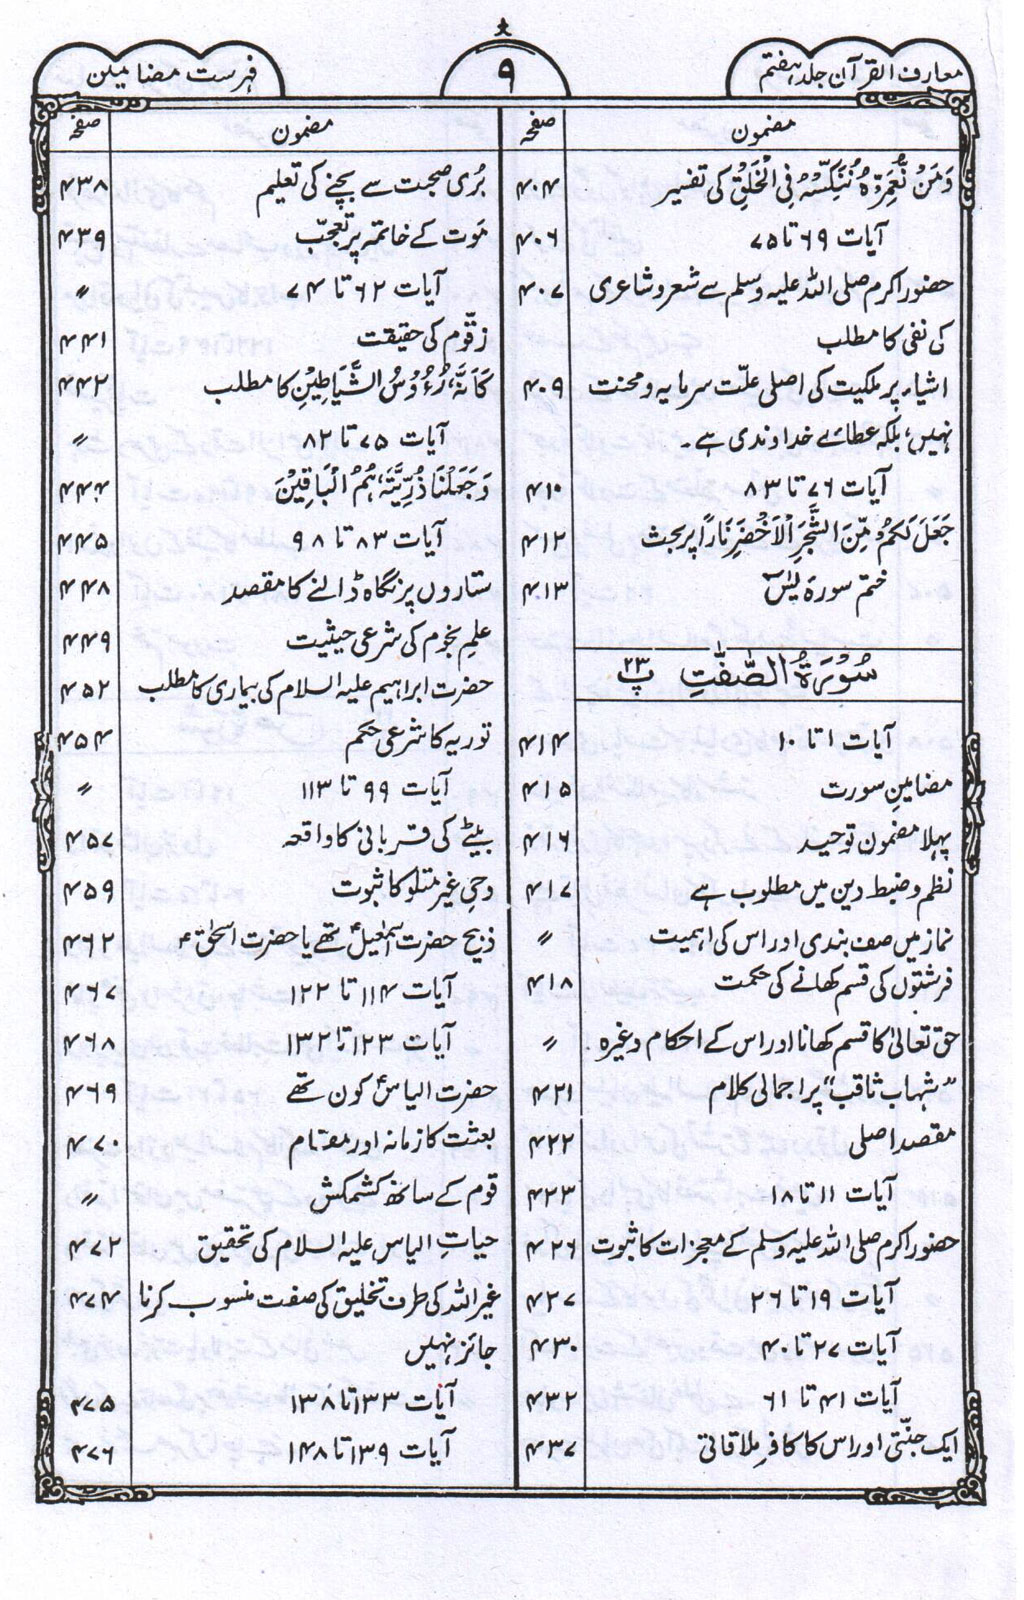 معارف القرآن جلد ہفتم
۹
فہرست مضامین
مضمون صفحہ
وَمَنْ نُّعَمِّرْهُ نُنَكِّسْهُ فِي الْخَلْقِ کی تفسیر ۴۰۴
آیات ۶۹ تا ۷۵ ۴۰۶
حضور اکرم صلی اللہ علیہ وسلم سے شعر و شاعری ۴۰۷
کی نفی کا مطلب
اشیاء پر ملکیت کی اصلی علّت سرمایہ و محنت ۴۰۹
نہیں، بلکہ عطائے خداوندی ہے۔
آیات ۷۶ تا ۸۳ ۴۱۰
جَعَلَ لَكُمْ مِّنَ الشَّجَرِ الْاَخْضَرِ نَارًا پر بحث ۴۱۲
ختم سورۃ یٰسٓ ۴۱۳
سُوْرَةُ الصّٰفّٰتِ پ ۲۳
آیات ۱ تا ۱۰ ۴۱۴
مضامینِ سورت ۴۱۵
پہلا مضمون توحید ۴۱۶
نظم و ضبط دین میں مطلوب ہے ۴۱۷
نماز میں صف بندی اور اس کی اہمیت 〃
فرشتوں کی قسم کھانے کی حکمت ۴۱۸
حق تعالیٰ کا قسم کھانا اور اس کے احکام وغیرہ 〃
”شہاب ثاقب“ پر اجمالی کلام ۴۲۱
مقصد اصلی ۴۲۲
آیات ۱۱ تا ۱۸ ۴۲۳
حضور اکرم صلی اللہ علیہ وسلم کے معجزات کا ثبوت ۴۲۶
آیات ۱۹ تا ۲۶ ۴۲۷
آیات ۲۷ تا ۴۰ ۴۳۰
آیات ۴۱ تا ۶۱ ۴۳۲
ایک جنّتی اور اس کا کافر ملاقاتی ۴۳۷
مضمون صفحہ
بُری صحبت سے بچنے کی تعلیم ۴۳۸
موت کے خاتمہ پر تعجّب ۴۳۹
آیات ۶۲ تا ۷۴ 〃
زقّوم کی حقیقت ۴۴۱
كَاَنَّهٗ رُءُوْسُ الشَّيَاطِيْنِ کا مطلب ۴۴۲
آیات ۷۵ تا ۸۲ 〃
وَجَعَلْنَا ذُرِّيَّتَهٗ هُمُ الْبَاقِيْنَ ۴۴۴
آیات ۸۳ تا ۹۸ ۴۴۵
ستاروں پر نگاہ ڈالنے کا مقصد ۴۴۸
علمِ نجوم کی شرعی حیثیت ۴۴۹
حضرت ابراہیم علیہ السلام کی بیماری کا مطلب ۴۵۲
توریہ کا شرعی حکم ۴۵۴
آیات ۹۹ تا ۱۱۳ 〃
بیٹے کی قربانی کا واقعہ ۴۵۷
وحیِ غیر متلو کا ثبوت ۴۵۹
ذبیح حضرت اسمٰعیلؑ تھے یا حضرت اسحٰقؑ ۴۶۲
آیات ۱۱۴ تا ۱۲۲ ۴۶۷
آیات ۱۲۳ تا ۱۳۲ ۴۶۸
حضرت الیاسؑ کون تھے ۴۶۹
بعثت کا زمانہ اور مقام ۴۷۰
قوم کے ساتھ کشمکش 〃
حیاتِ الیاس علیہ السلام کی تحقیق ۴۷۲
غیر اللہ کی طرف تخلیق کی صفت منسوب کرنا ۴۷۴
جائز نہیں
آیات ۱۳۳ تا ۱۳۸ ۴۷۵
آیات ۱۳۹ تا ۱۴۸ ۴۷۶